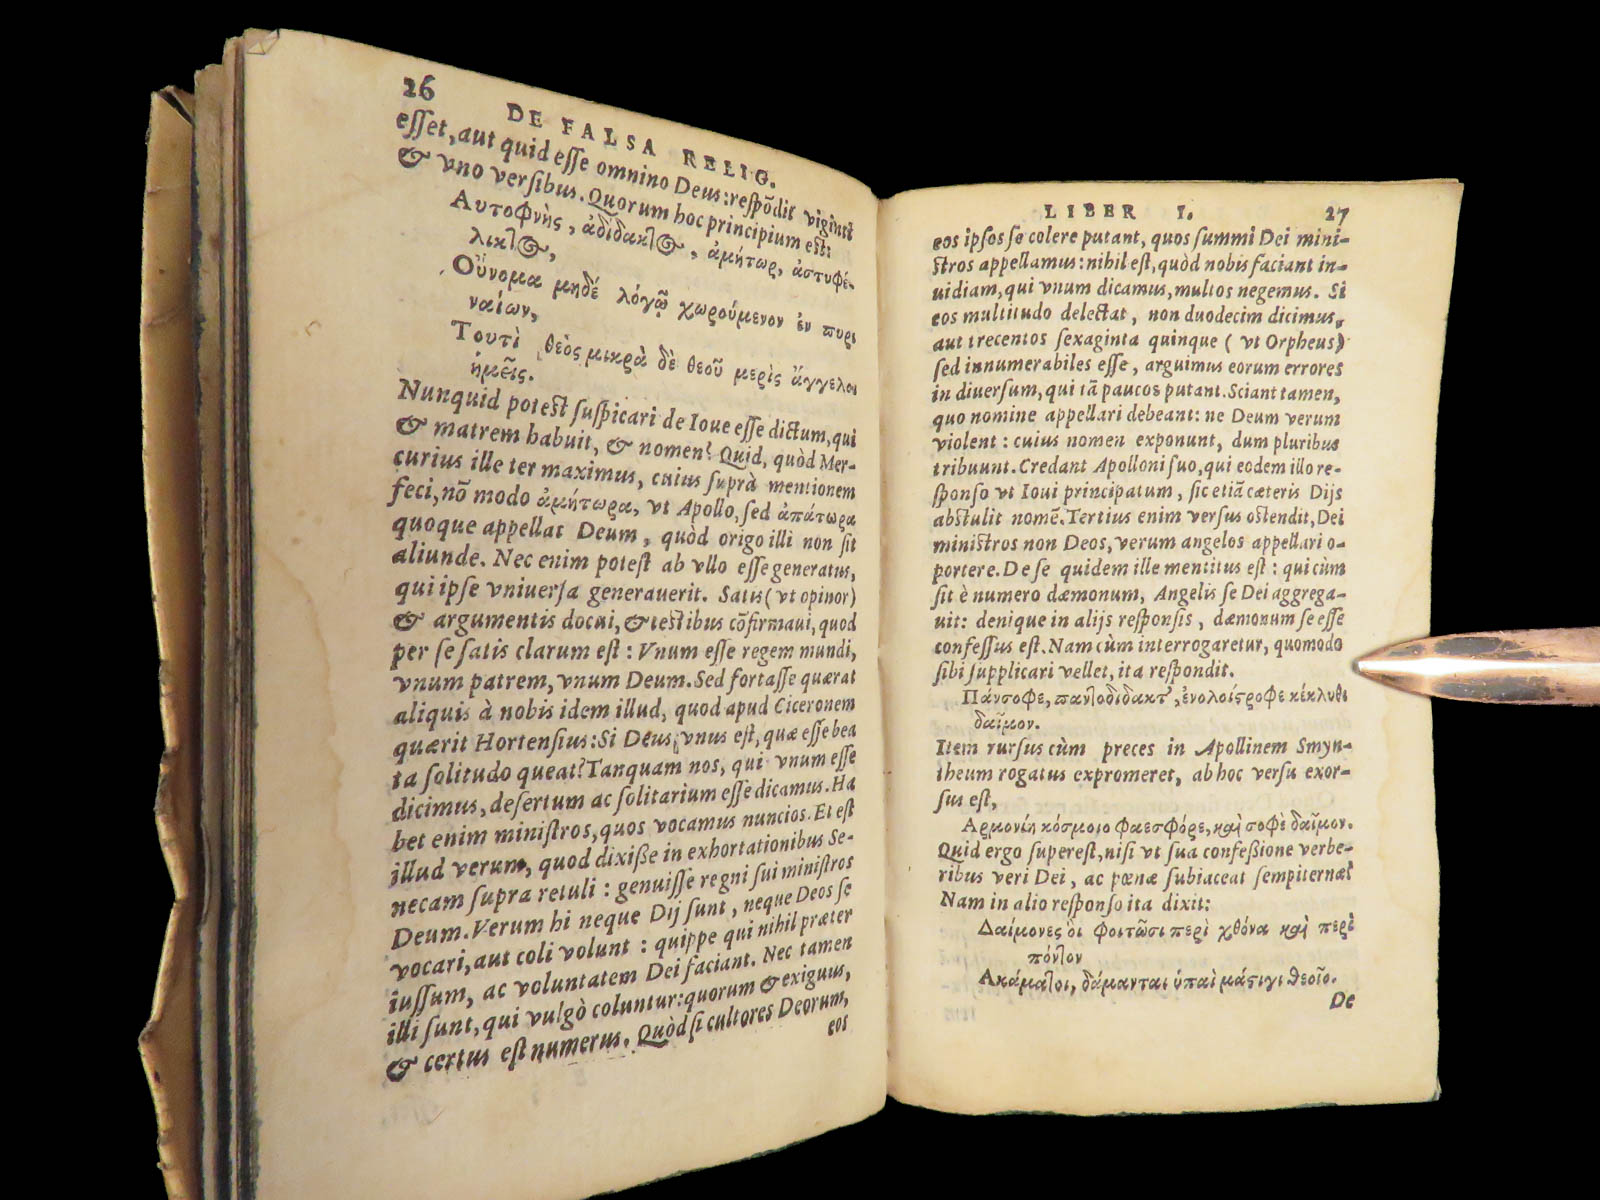 26
DE FALSA RELIG.
esset, aut quid esse omnino Deus: respōdit viginti
& vno versibus. Quorum hoc principium est:
Αυτοφνὴς, ἀδίδακτος, ἀμήτωρ, ἀστυφέ-
λικτος,
Οὔνομα μηδέ λόγῳ χωρούμενον ἐν πυρι
ναίων,
Τουτὶ θεὸς μικρὰ δὲ θεοῦ μερὶς ἄγγελοι
ἡμεῖς.
Nunquid potest suspicari de Ioue esse dictum, qui
& matrem habuit, & nomen? Quid, quòd Mer-
curius ille ter maximus, cuius suprà mentionem
feci, nō modo ἀμήτωρα, vt Apollo, sed ἀπάτωρα
quoque appellat Deum, quòd origo illi non sit
aliunde. Nec enim potest ab vllo esse generatus,
qui ipse vniuersa generauerit. Satis (vt opinor)
& argumentis docui, & testibus cōfirmaui, quod
per se satis clarum est: Vnum esse regem mundi,
vnum patrem, vnum Deum. Sed fortasse quærat
aliquis à nobis idem illud, quod apud Ciceronem
quærit Hortensius: Si Deus vnus est, quæ esse bea
ta solitudo queat? Tanquam nos, qui vnum esse
dicimus, desertum ac solitarium esse dicamus. Ha
bet enim ministros, quos vocamus nuncios. Et est
illud verum, quod dixisse in exhortationibus Se-
necam supra retuli: genuisse regni sui ministros
Deum. Verum hi neque Dij sunt, neque Deos se
vocari, aut coli volunt: quippe qui nihil præter
iussum, ac voluntatem Dei faciant. Nec tamen
illi sunt, qui vulgò coluntur: quorum & exiguus,
& certus est numerus. Quòd si cultores Deorum,
eos
LIBER I.
27
eos ipsos se colere putant, quos summi Dei mini-
stros appellamus: nihil est, quòd nobis faciant in-
uidiam, qui vnum dicamus, multos negemus. Si
eos multitudo delectat, non duodecim dicimus,
aut trecentos sexaginta quinque (vt Orpheus)
sed innumerabiles esse, arguimus eorum errores
in diuersum, qui tā paucos putant. Sciant tamen,
quo nomine appellari debeant: ne Deum verum
violent: cuius nomen exponunt, dum pluribus
tribuunt. Credant Apollini suo, qui eodem illo re-
sponso vt Ioui principatum, sic etiā cæteris Dijs
abstulit nomē. Tertius enim versus ostendit, Dei
ministros non Deos, verum angelos appellari o-
portere. De se quidem ille mentitus est: qui cùm
sit è numero dæmonum, Angelis se Dei aggrega-
uit: denique in alijs responsis, dæmonum se esse
confessus est. Nam cùm interrogaretur, quomodo
sibi supplicari vellet, ita respondit.
Πάνσοφε, παντοδίδακτ', ἐνολοίστροφε κέκλυθι
δαῖμον.
Item rursus cùm preces in Apollinem Smyn-
theum rogatus expromeret, ab hoc versu exor-
sus est,
Αρμονίη κόσμοιο φαεσφόρε, καὶ σοφὲ δαῖμον.
Quid ergo superest, nisi vt sua confessione verbe-
ribus veri Dei, ac pœnæ subiaceat sempiternæ?
Nam in alio responso ita dixit:
Δαίμονες ὃι φοιτῶσι περὶ χθόνα καὶ περὶ
πόντον
Ακάματοι, δάμανται ὑπαὶ μάστιγι θεοῖο.
De